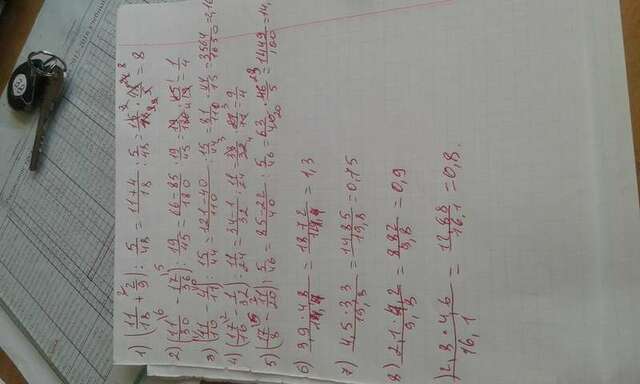 1) (11/18 + 2/9) : 5/48 = 11+4/18 : 5/48 = 15/18 · 48/5 = 8
2) (11/30 - 17/36) : 19/45 = 66-85/180 : 19/45 = 19/180 · 45/19 = 1/4
3) 11/10 - 4/11) : 15/44 = 121-40/110 : 15/44 = 81/110 · 44/15 = 3564/1650 = 2,16
4) (17/16 - 1/32) : 11/24 = 34-1/32 : 11/24 = 33/32 · 24/11 = 9/4
5) (17/8 - 11/20) : 5/46 = 85-22/40 : 5/46 = 63/40 · 46/5 = 1449/100 = 14,
6) 3,9·4,8/14,4 = 18,72/14,4 = 1,3
7) 4,5·3,3/19,8 = 14,85/19,8 = 0,75
8) 2,1·4,2/9,8 = 8,82/9,8 = 0,9
) 2,8·4,6/16,1 = 12,88/16,1 = 0,8.